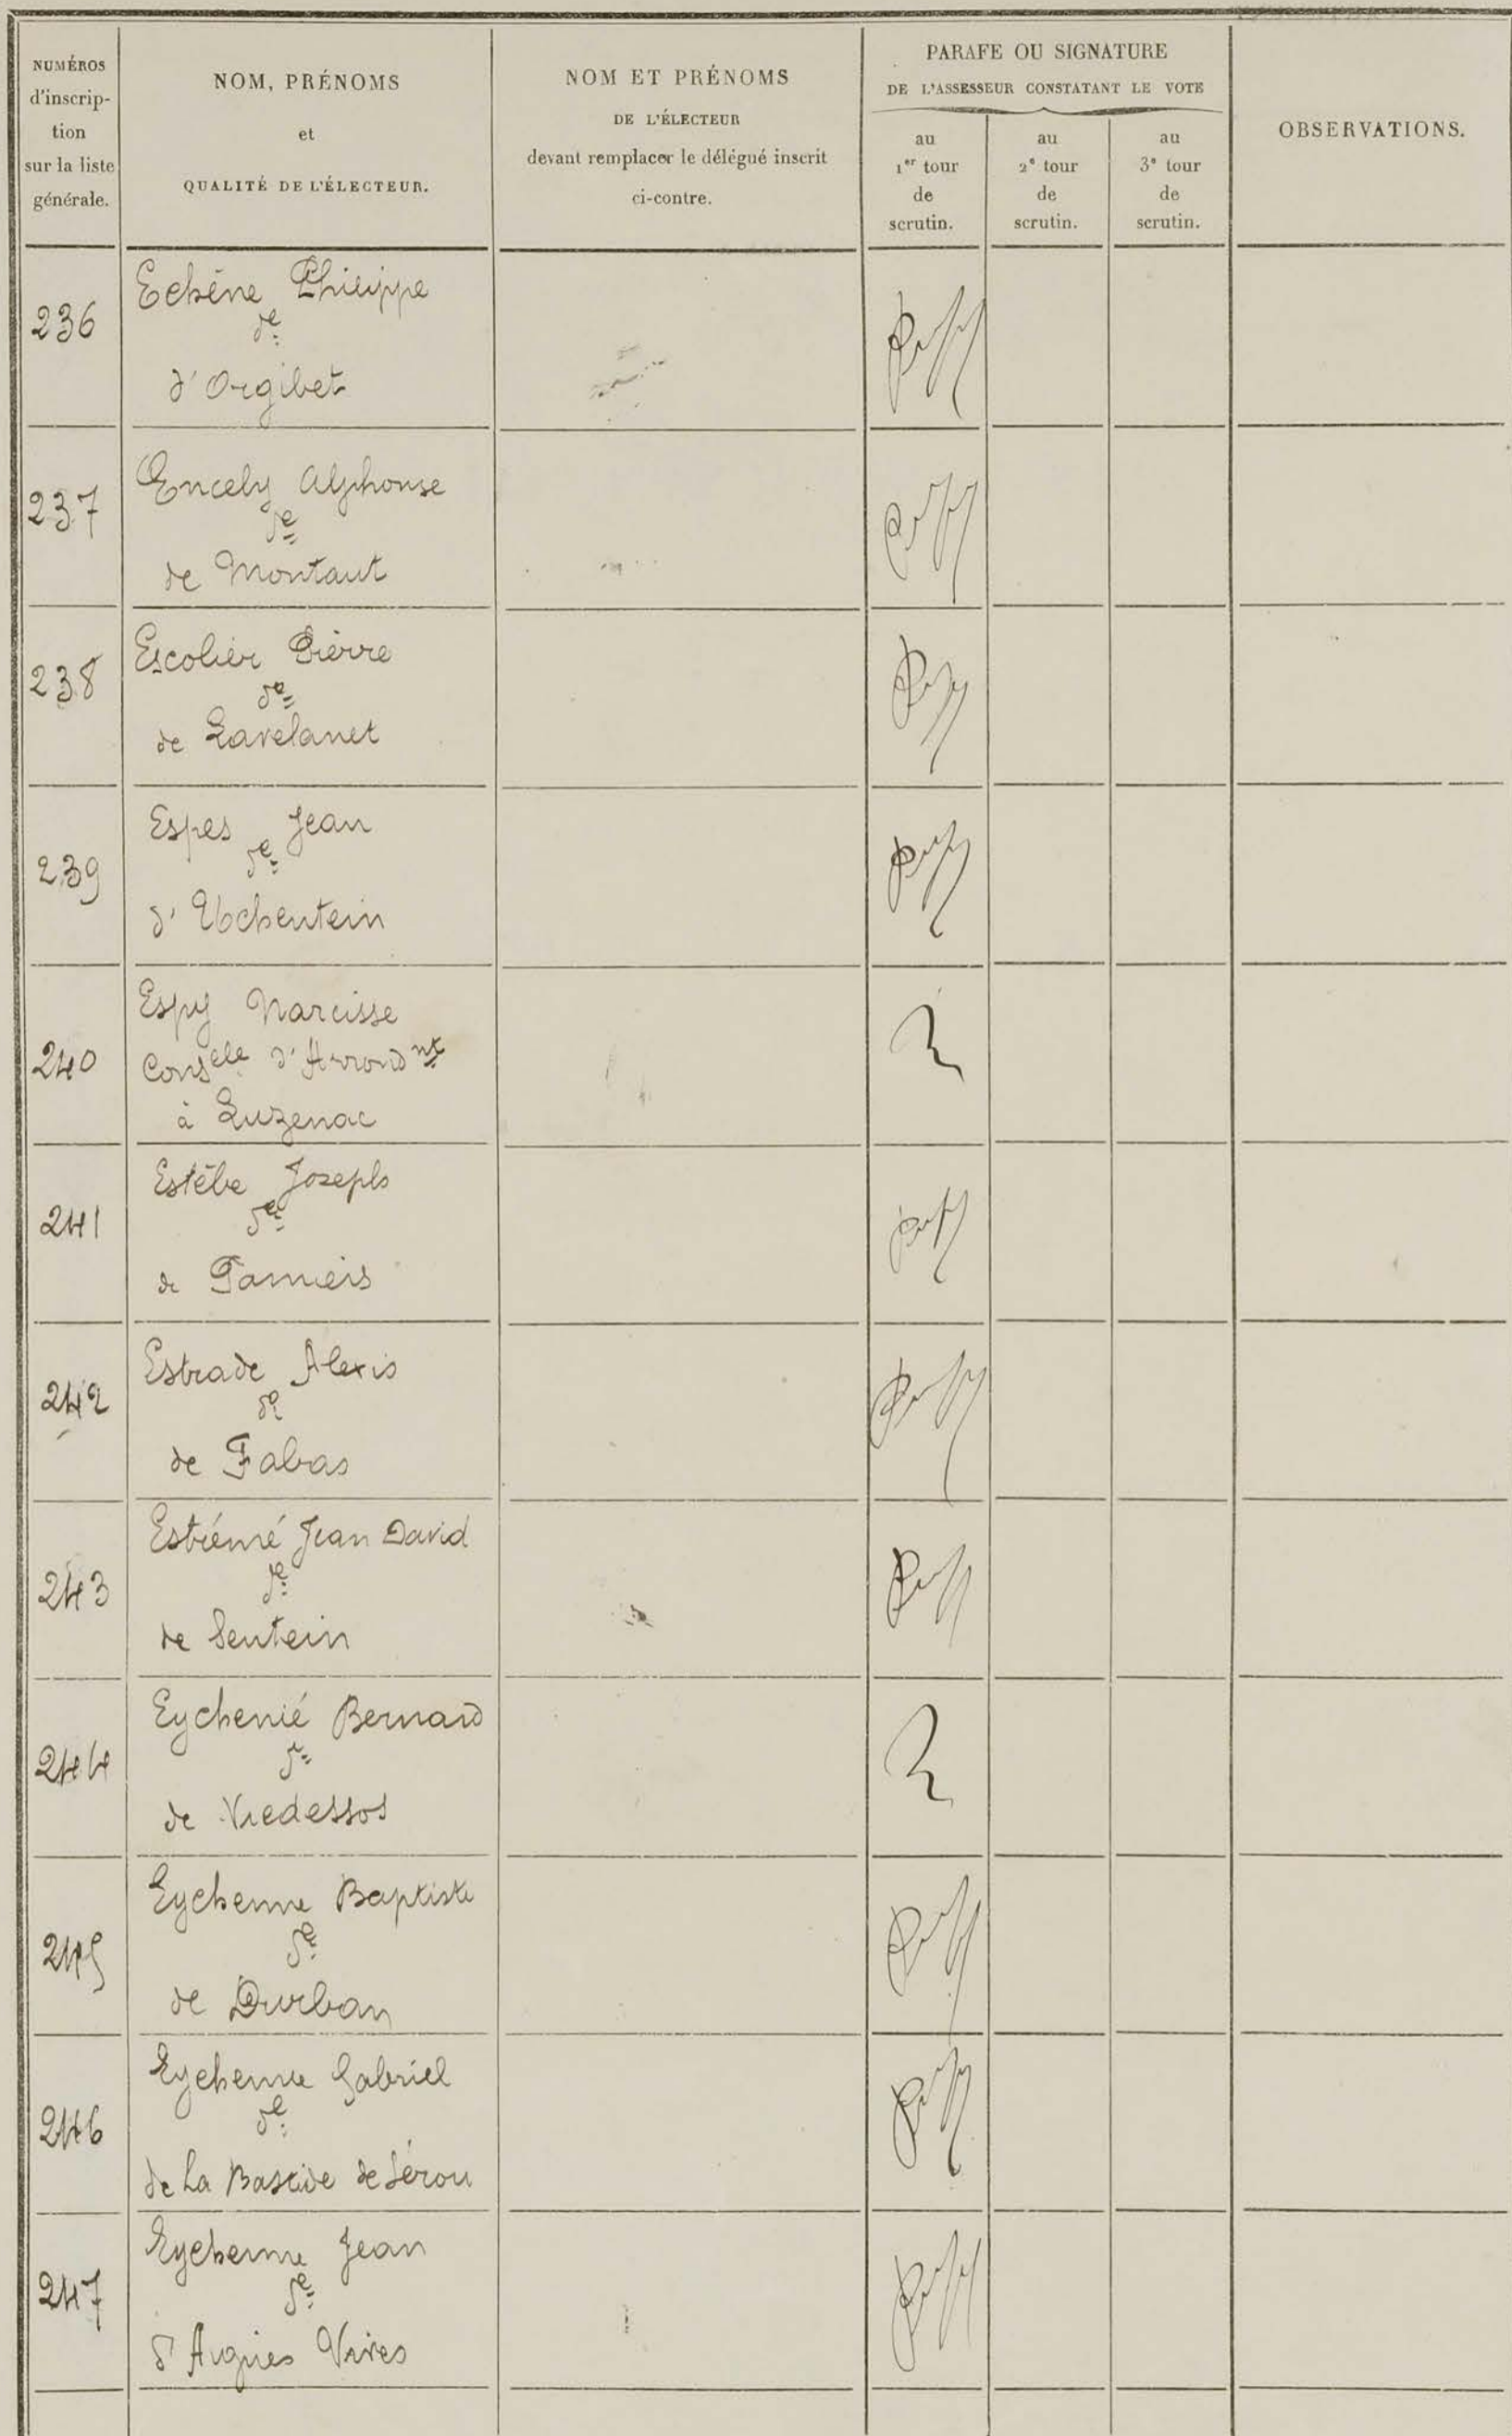 NUMÉROS
d'inscrip-
tion
sur la liste
générale.
NOM, PRÉNOMS
et
QUALITÉ DE L'ÉLECTEUR.
NOM ET PRÉNOMS
DE L'ÉLECTEUR
devant remplacer le délégué inscrit
ci-contre.
PARAFE OU SIGNATURE
DE L'ASSESSEUR CONSTATANT LE VOTE
au
1er tour
de
scrutin.
au
2e tour
de
scrutin.
au
3e tour
de
scrutin.
OBSERVATIONS.
236
Echène Philippe
dé
d'Orgibet
237
Encely Alphonse
dé
de Montaut
238
Escolier Pierre
dé
de Lavelanet
239
Espes Jean
dé
d'Uchentein
240
Espy Narcisse
Conseler d'Arrondnt
à Luzenac
241
Estèbe Joseph
dé
de Pamiers
242
Estrade Alexis
dé
de Fabas
243
Estrémé Jean David
dé
de Sentein
244
Eychenié Bernard
dé
de Vicdessos
245
Eychenne Baptiste
dé
de Durban
246
Eychenne Gabriel
dé
de La Bastide de Sérou
247
Eychenne Jean
dé
d'Aigues Vives